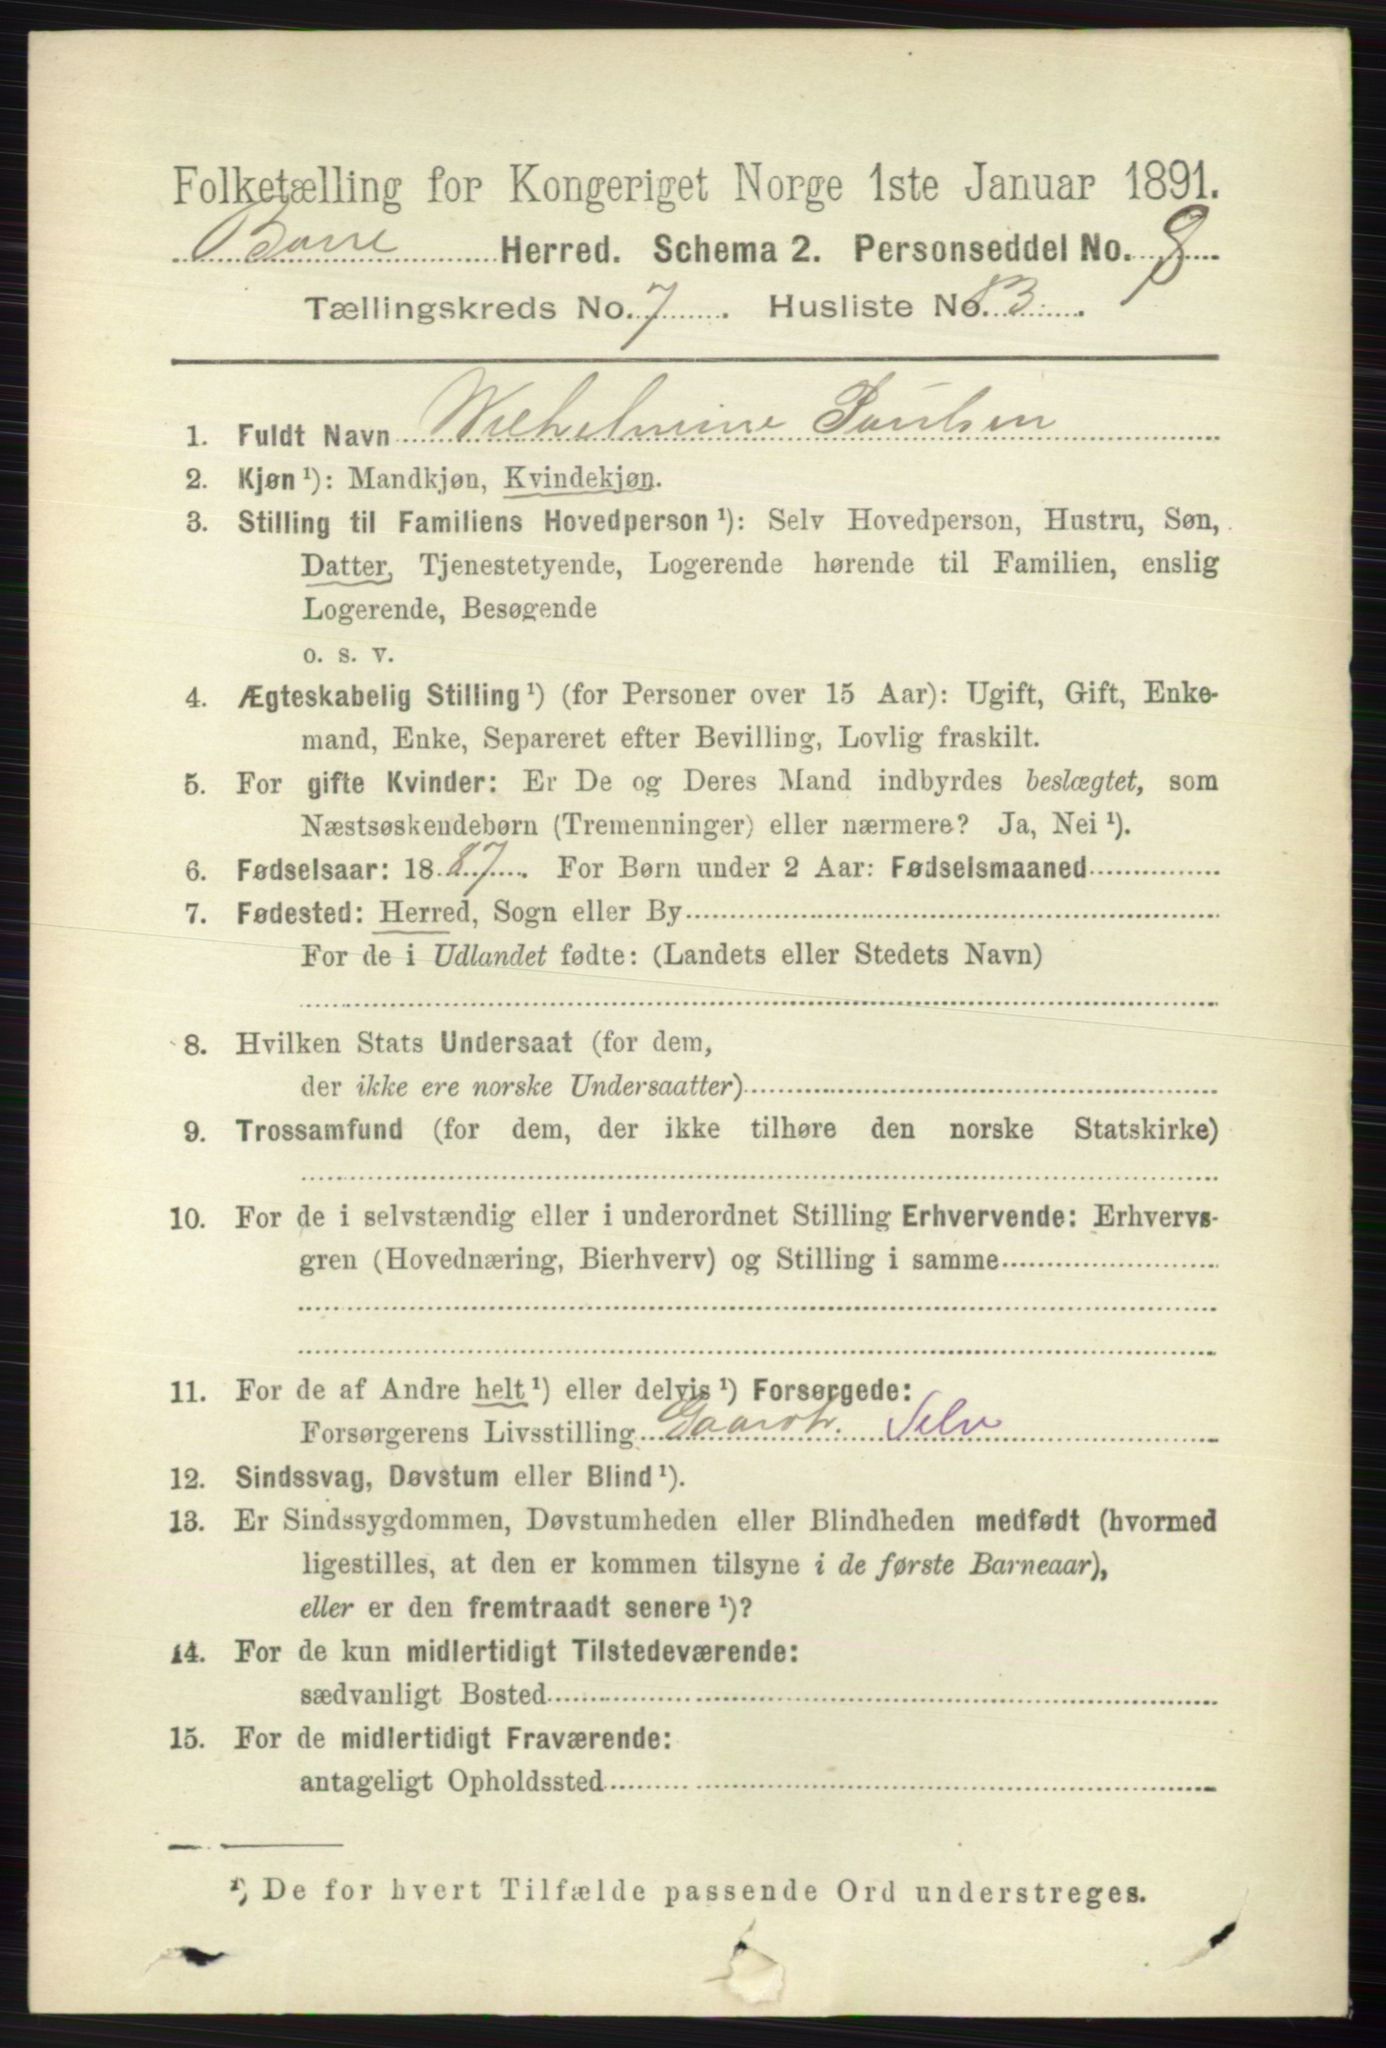 Folketælling for Kongeriget Norge 1ste Januar 1891.
Borre Herred. Schema 2. Personseddel No. 8
Tællingskreds No. 7. Husliste No. 83.
1. Fuldt Navn Wilhelmine Paulsen
2. Kjøn ¹): Mandkjøn, Kvindekjøn.
3. Stilling til Familiens Hovedperson ¹): Selv Hovedperson, Hustru, Søn,
Datter, Tjenestetyende, Logerende hørende til Familien, enslig
Logerende, Besøgende
o. s. v.
4. Ægteskabelig Stilling ¹) (for Personer over 15 Aar): Ugift, Gift, Enke-
mand, Enke, Separeret efter Bevilling, Lovlig fraskilt.
5. For gifte Kvinder: Er De og Deres Mand indbyrdes beslægtet, som
Næstsøskendebørn (Tremenninger) eller nærmere? Ja, Nei ¹).
6. Fødselsaar: 1887. For Børn under 2 Aar: Fødselsmaaned
7. Fødested: Herred, Sogn eller By
For de i Udlandet fødte: (Landets eller Stedets Navn)
8. Hvilken Stats Undersaat (for dem,
der ikke ere norske Undersaatter)
9. Trossamfund (for dem, der ikke tilhøre den norske Statskirke)
10. For de i selvstændig eller i underordnet Stilling Erhvervende: Erhvervs-
gren (Hovednæring, Bierhverv) og Stilling i samme
11. For de af Andre helt ¹) eller delvis ¹) Forsørgede:
Forsørgerens Livsstilling Gaardbr. Selv
12. Sindssvag, Døvstum eller Blind ¹).
13. Er Sindssygdommen, Døvstumheden eller Blindheden medfødt (hvormed
ligestilles, at den er kommen tilsyne i de første Barneaar),
eller er den fremtraadt senere ¹)?
14. For de kun midlertidigt Tilstedeværende:
sædvanligt Bosted
15. For de midlertidigt Fraværende:
antageligt Opholdssted
¹) De for hvert Tilfælde passende Ord understreges.